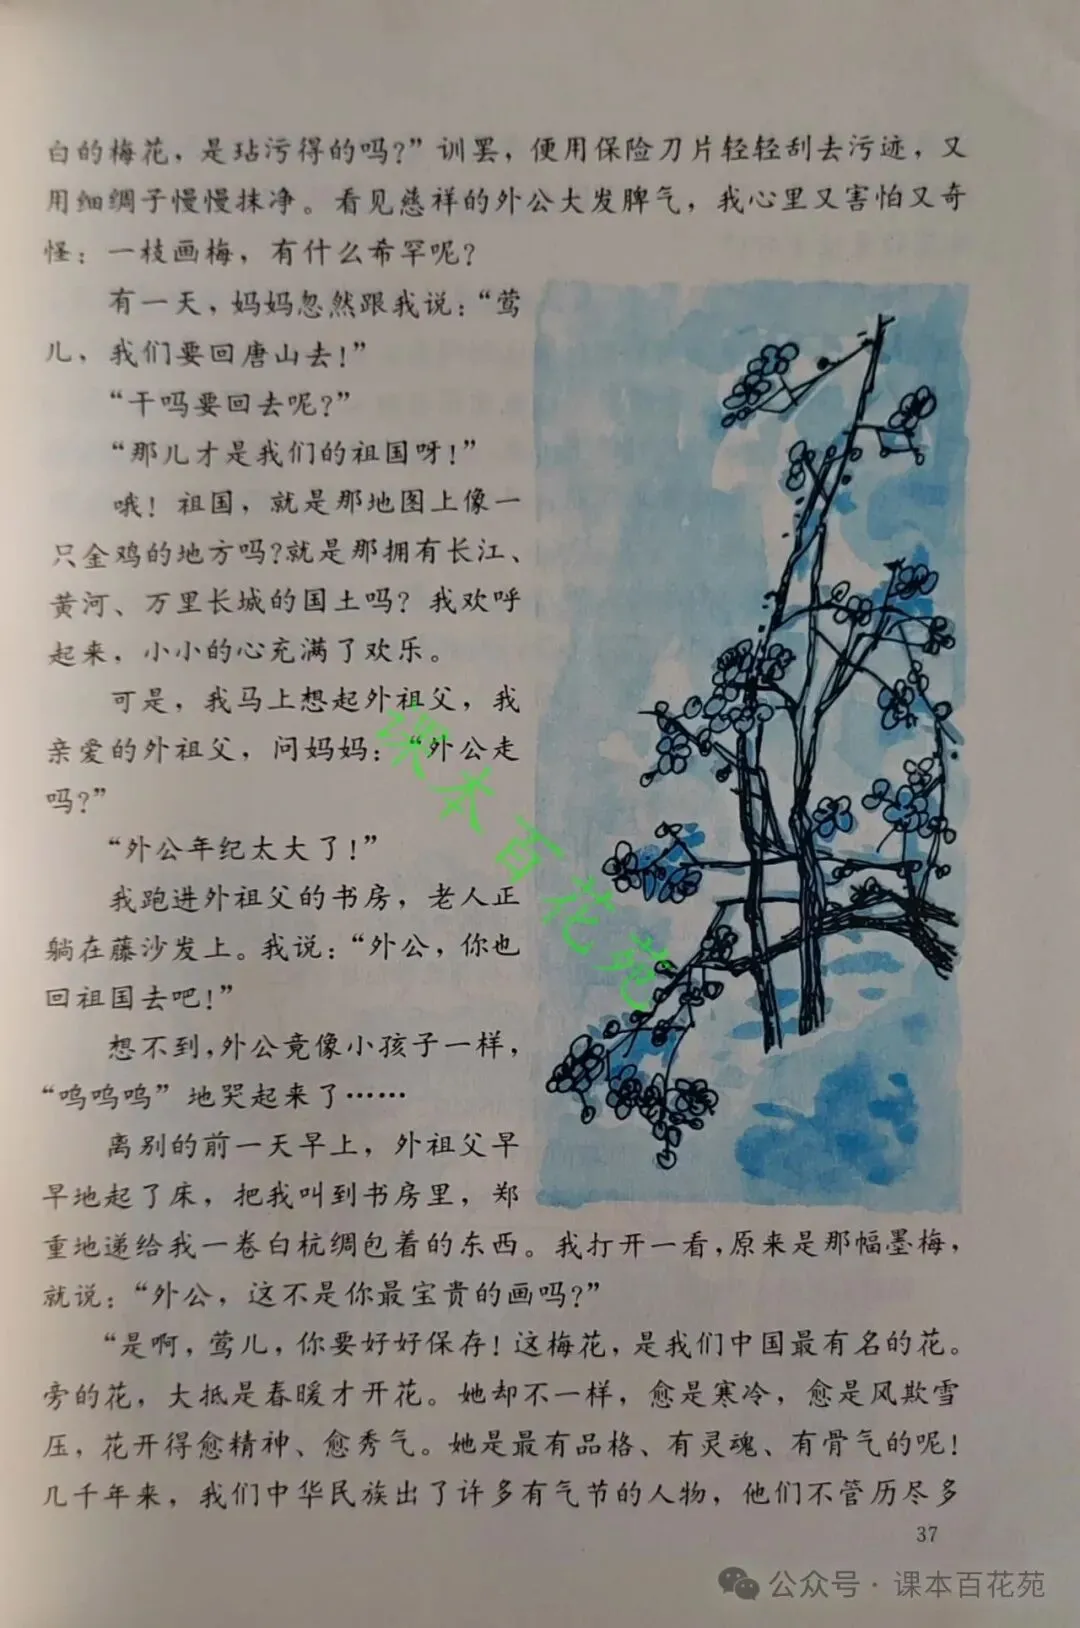 白的梅花，是玷污得的吗？”训罢，便用保险刀片轻轻刮去污迹，又
用细绸子慢慢抹净。看见慈祥的外公大发脾气，我心里又害怕又奇
怪：一枝画梅，有什么希罕呢？
有一天，妈妈忽然跟我说：“莺
儿，我们要回唐山去！”
“干吗要回去呢？”
“那儿才是我们的祖国呀！”
哦！祖国，就是那地图上像一
只金鸡的地方吗？就是那拥有长江、
黄河、万里长城的国土吗？我欢呼
起来，小小的心充满了欢乐。
可是，我马上想起外祖父，我
亲爱的外祖父，问妈妈：“外公走
吗？”
“外公年纪太大了！”
我跑进外祖父的书房，老人正
躺在藤沙发上。我说：“外公，你也
回祖国去吧！”
想不到，外公竟像小孩子一样，
“呜呜呜”地哭起来了……
离别的前一天早上，外祖父早
早地起了床，把我叫到书房里，郑
重地递给我一卷白杭绸包着的东西。我打开一看，原来是那幅墨梅，
就说：“外公，这不是你最宝贵的画吗？”
“是啊，莺儿，你要好好保存！这梅花，是我们中国最有名的花。
旁的花，大抵是春暖才开花。她却不一样，愈是寒冷，愈是风欺雪
压，花开得愈精神、愈秀气。她是最有品格、有灵魂、有骨气的呢！
几千年来，我们中华民族出了许多有气节的人物，他们不管历尽多
37
课本百花苑
公众号·课本百花苑